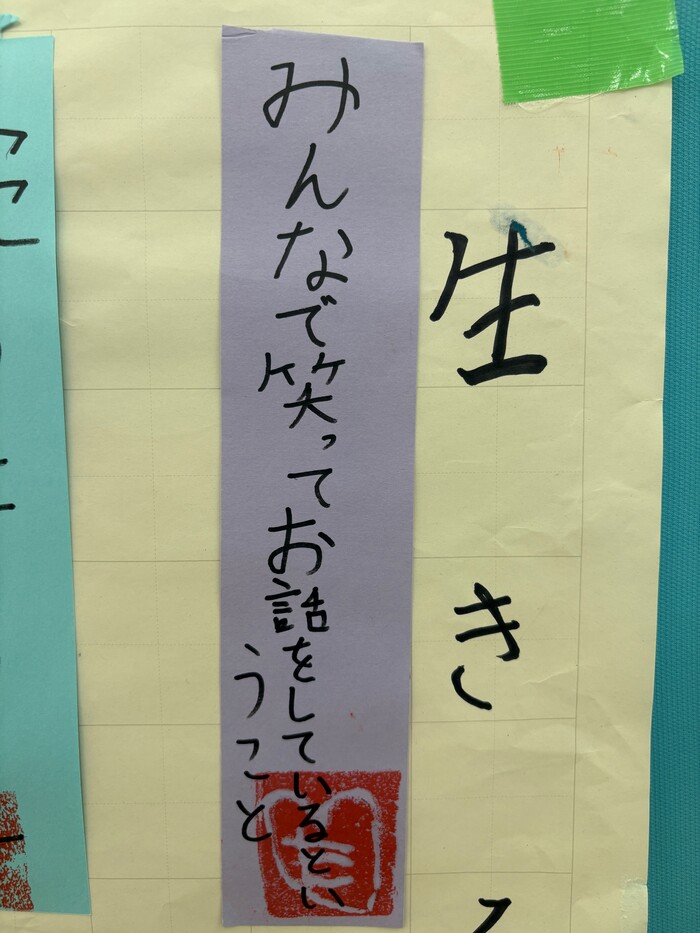 生き
みんなで笑ってお話をしているとい
うこと